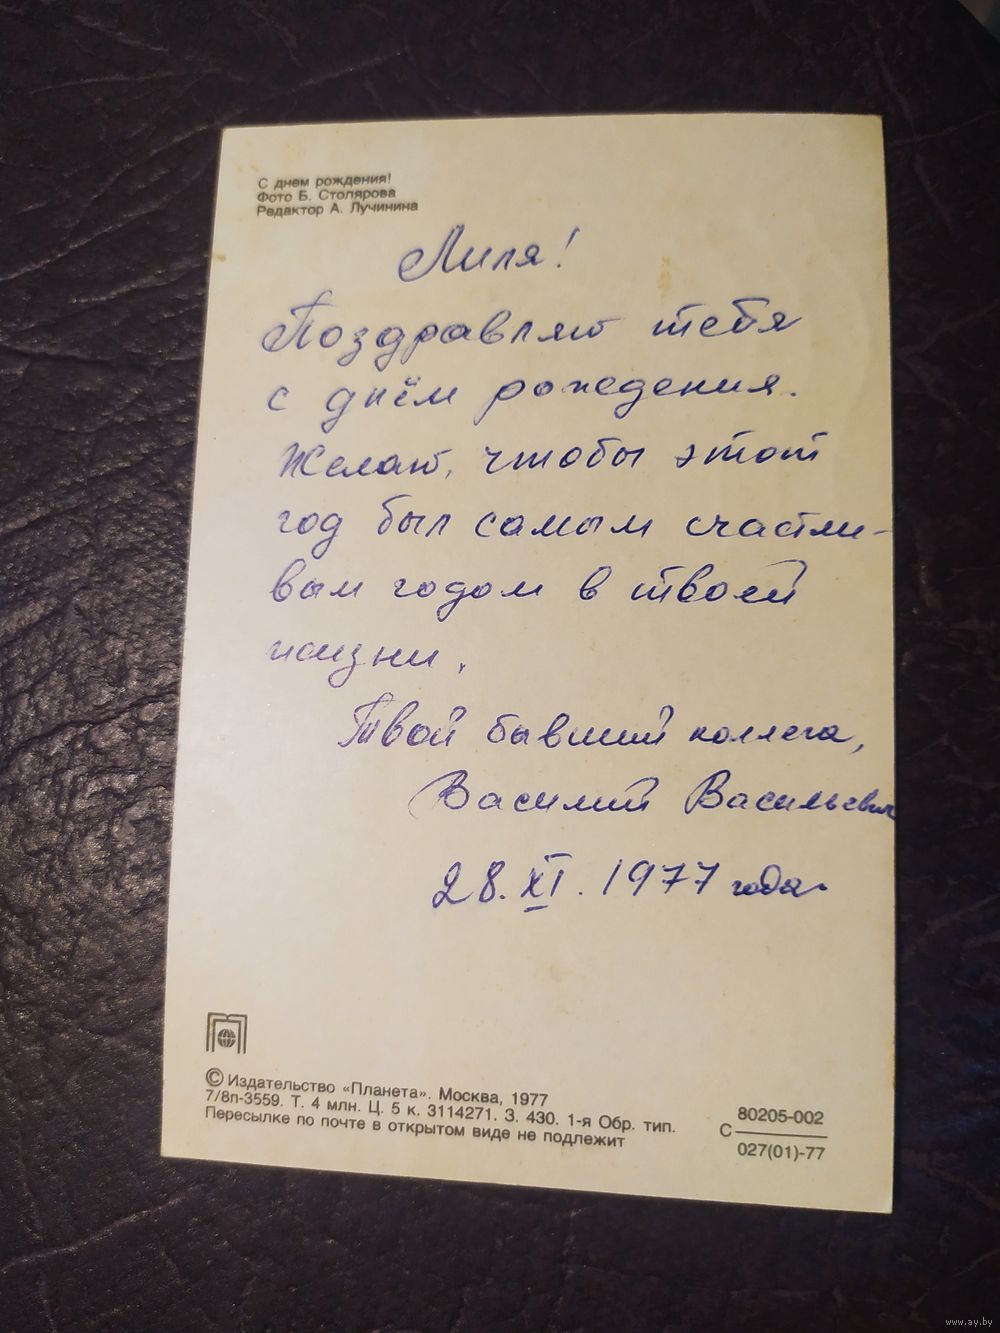 С днем рождения!
Фото Б. Столярова
Редактор А. Лучинина
Лиля!
Поздравляю тебя
с днём рождения.
Желаю, чтобы этот
год был самым счастли-
вым годом в твоей
жизни.
Твой бывший коллега,
Василий Васильевич
28. XI. 1977 года.
© Издательство «Планета». Москва, 1977
7/8п-3559. Т. 4 млн. Ц. 5 к. 3114271. З. 430. 1-я Обр. тип.
Пересылке по почте в открытом виде не подлежит
80205-002
С
027(01)-77
www.ay.by